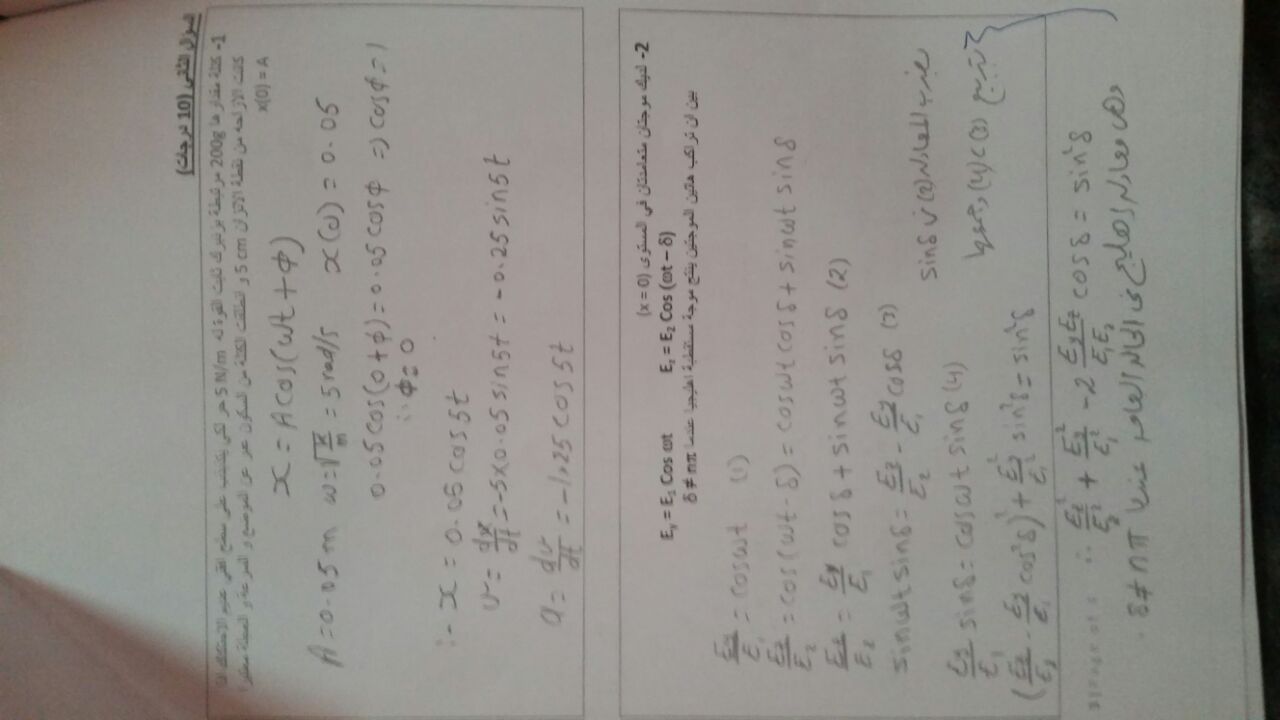 السؤال الثاني (10 درجات)
1- كتلة مقدارها 200g مرتبطة بزنبرك ثابت القوة له 5 N/m حر لكي يتذبذب على سطح افقي عديم الاحتكاك
كانت الازاحة من نقطة الاتزان 5 cm و انطلقت الكتلة من السكون عبر عن الموضع و السرعة و العجلة
x(0) = A
x = A cos(ωt + φ)
A = 0.05 m ω = √k/m = 5 rad/s x(0) = 0.05
0.05 cos(0+φ) = 0.05 cosφ => cosφ = 1
∴ φ = 0
∴ x = 0.05 cos5t
v = dx/dt = -5×0.05 sin5t = -0.25 sin5t
a = dv/dt = -1.25 cos5t
2- لديك موجتان متعامدتان في المستوى (x = 0)
Ey = E1 Cos ωt Ez = E2 Cos (ωt – δ)
بين ان تراكب هاتين الموجتين ينتج موجة مستقطبة اهليجيا عندما δ ≠ nπ
Ey/E1 = cosωt (1)
Ez/E2 = cos(ωt-δ) = cosωt cosδ + sinωt sinδ
Ez/E2 = Ey/E1 cosδ + sinωt sinδ (2)
sinωt sinδ = Ez/E2 - Ey/E1 cosδ (3)
بضرب المعادلة (2) في sinδ
Ey/E1 sinδ = cosωt sinδ (4)
بتربيع (3) و (4) وجمعها
(Ez/E2 - Ey/E1 cosδ)² + Ey²/E1² sin²δ = sin²δ
∴ Ez²/E2² + Ey²/E1² - 2 EyEz/E1E2 cosδ = sin²δ
وهى معادلة اهليج فى الحالة العامة عندما
δ ≠ nπ